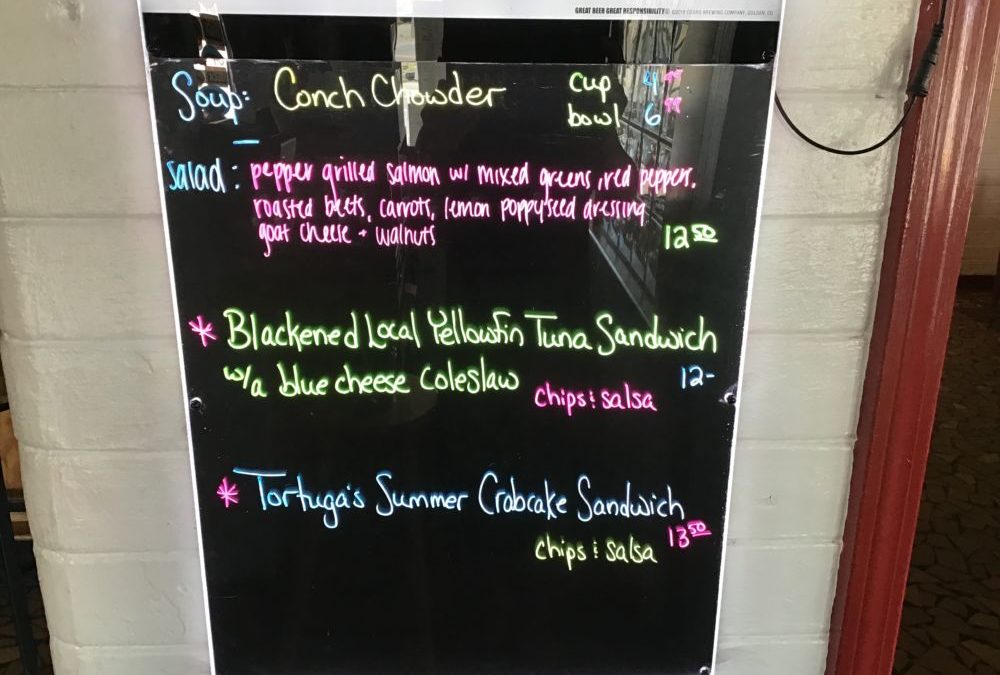 GREAT BEER GREAT RESPONSIBILITY® ©2019 COORS BREWING COMPANY, GOLDEN, CO
Soup: Conch Chowder cup 4.99
bowl 6.99
Salad: pepper grilled salmon w/ mixed greens, red peppers,
roasted beets, carrots, lemon poppyseed dressing
goat cheese + walnuts 12.50
* Blackened Local Yellowfin Tuna Sandwich
w/a blue cheese coleslaw 12-
chips & salsa
* Tortuga's Summer Crabcake Sandwich
chips & salsa 13.50